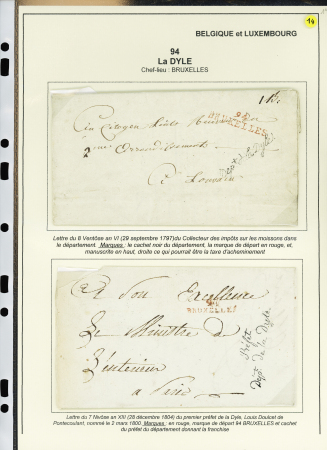 14
BELGIQUE et LUXEMBOURG
94
La DYLE
Chef-lieu : BRUXELLES
94
BRUXELLES
Au Citoyen
2me Arrondissement
A Louvain
Lettre du 8 Ventôse an VI (29 septembre 1797)du Collecteur des impôts sur les moissons dans
le département. Marques : le cachet noir du département, la marque de départ en rouge, et,
manuscrite en haut, droite ce qui pourrait être la taxe d'acheminement
A Son Excellence
94
BRUXELLES
Le Ministre de
L'intérieur
a Paris
Préfet
Dépt de la Dyle
Lettre du 7 Nivôse an XIII (28 décembre 1804) du premier préfet de la Dyle, Louis Doulcet de
Pontecoulant, nommé le 2 mars 1800. Marques : en rouge, marque de départ 94 BRUXELLES et cachet
du préfet du département donnant la franchise